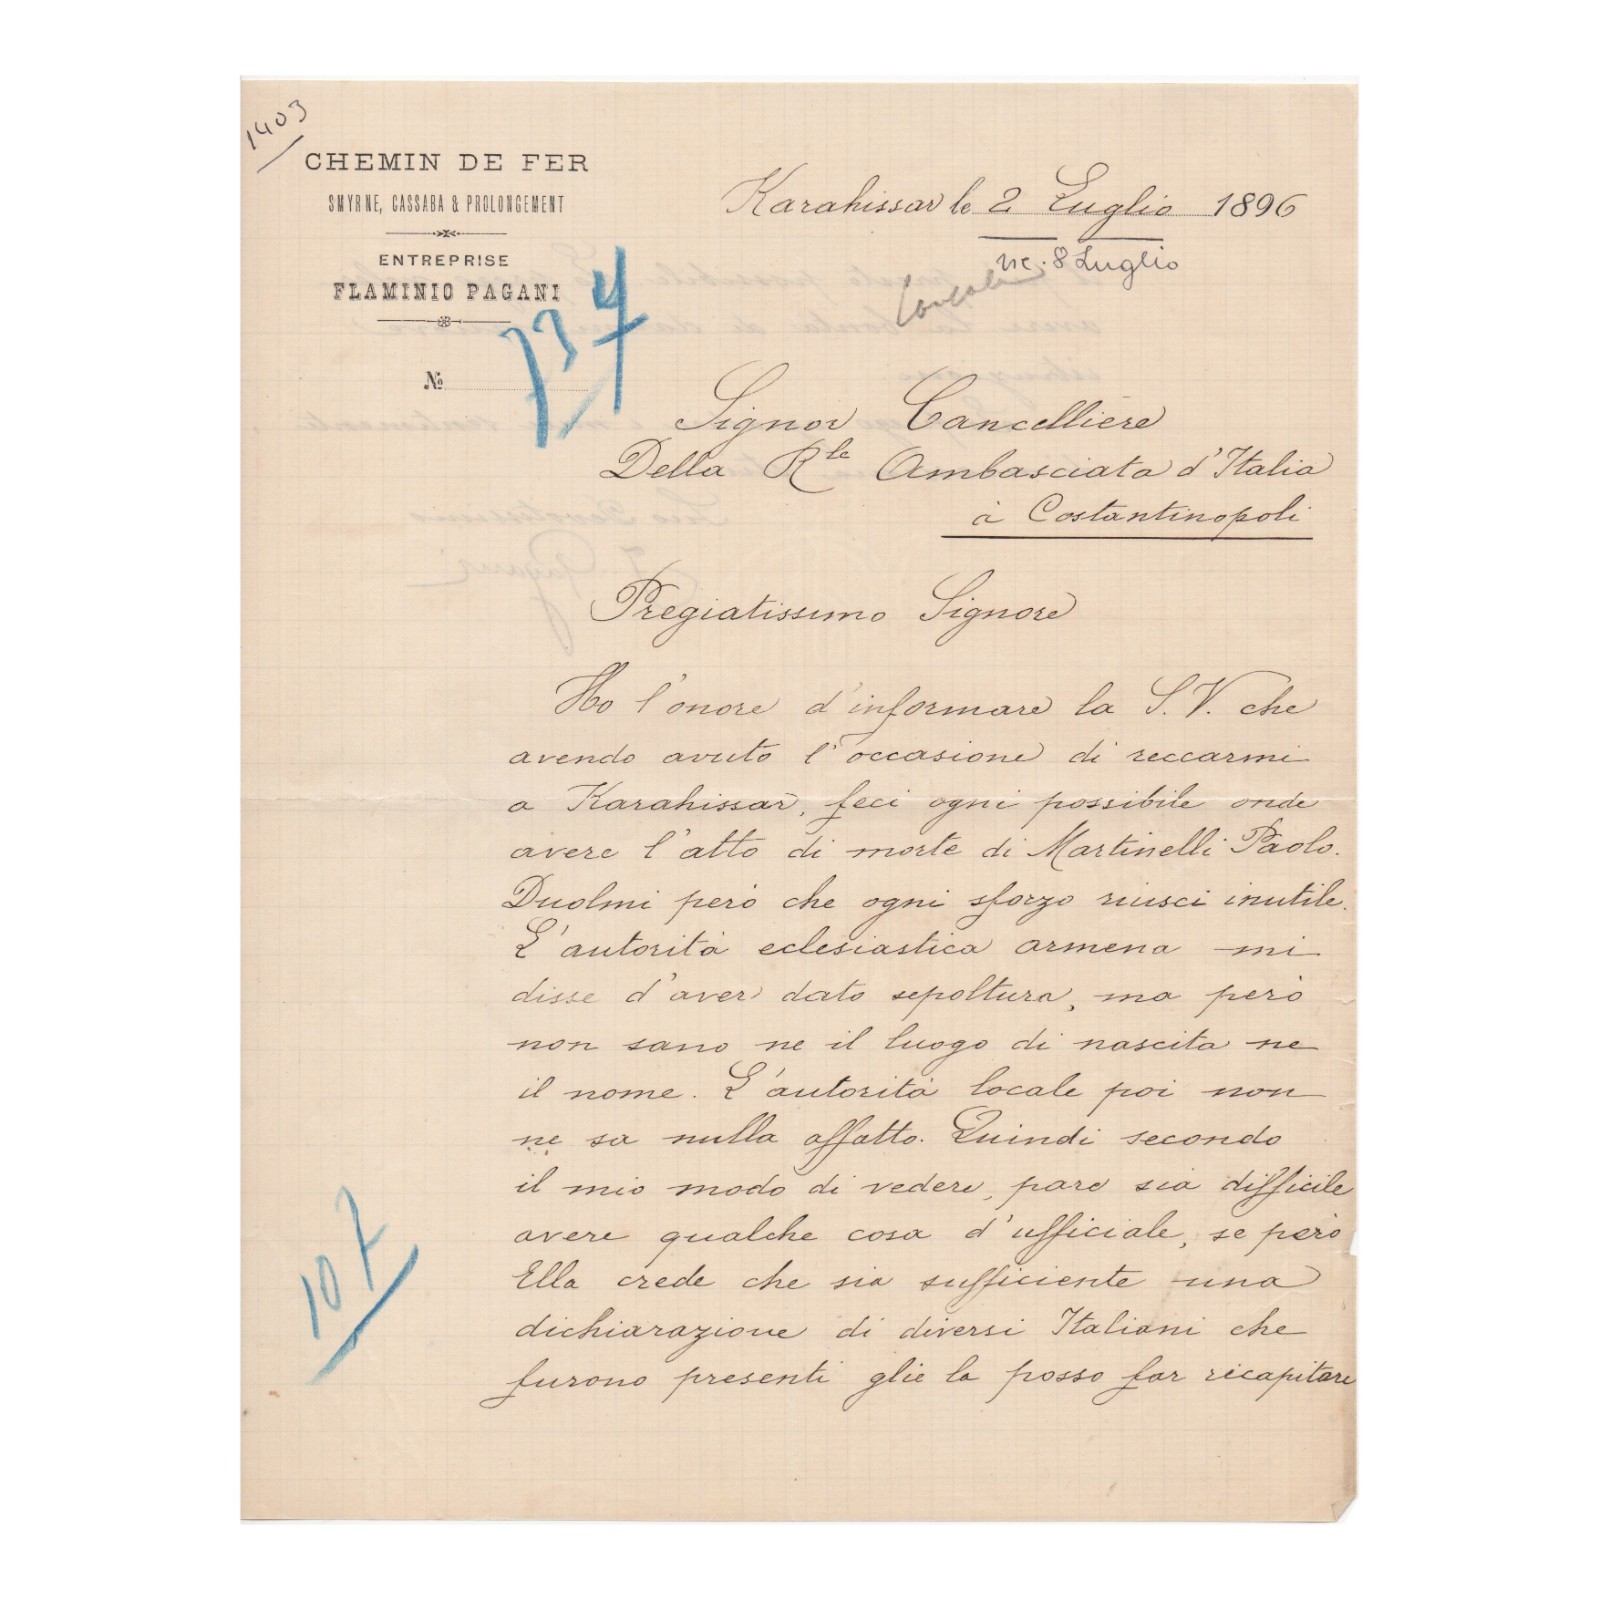 1403
CHEMIN DE FER
SMYRNE, CASSABA & PROLONGEMENT
ENTREPRISE
FLAMINIO PAGANI
No
734
Karahissar le 2 Luglio 1896
ric. 8 Luglio
Signor Cancelliere
Della Rle Ambasciata d'Italia
à Costantinopoli
Pregiatissimo Signore
Ho l'onore d'informare la S. V. che
avendo avuto l'occasione di reccarmi
a Karahissar, feci ogni possibile onde
avere l'atto di morte di Martinelli Paolo.
Duolmi però che ogni sforzo riusci inutile.
L'autorità eclesiastica armena mi
disse d'aver dato sepoltura, ma però
non sano ne il luogo di nascita ne
il nome. L'autorità locale poi non
ne sa nulla affatto. Quindi secondo
il mio modo di vedere, pare sia difficile
avere qualche cosa d'ufficiale, se però
Ella crede che sia sufficiente una
dichiarazione di diversi Italiani che
furono presenti glie la posso far recapitare
107